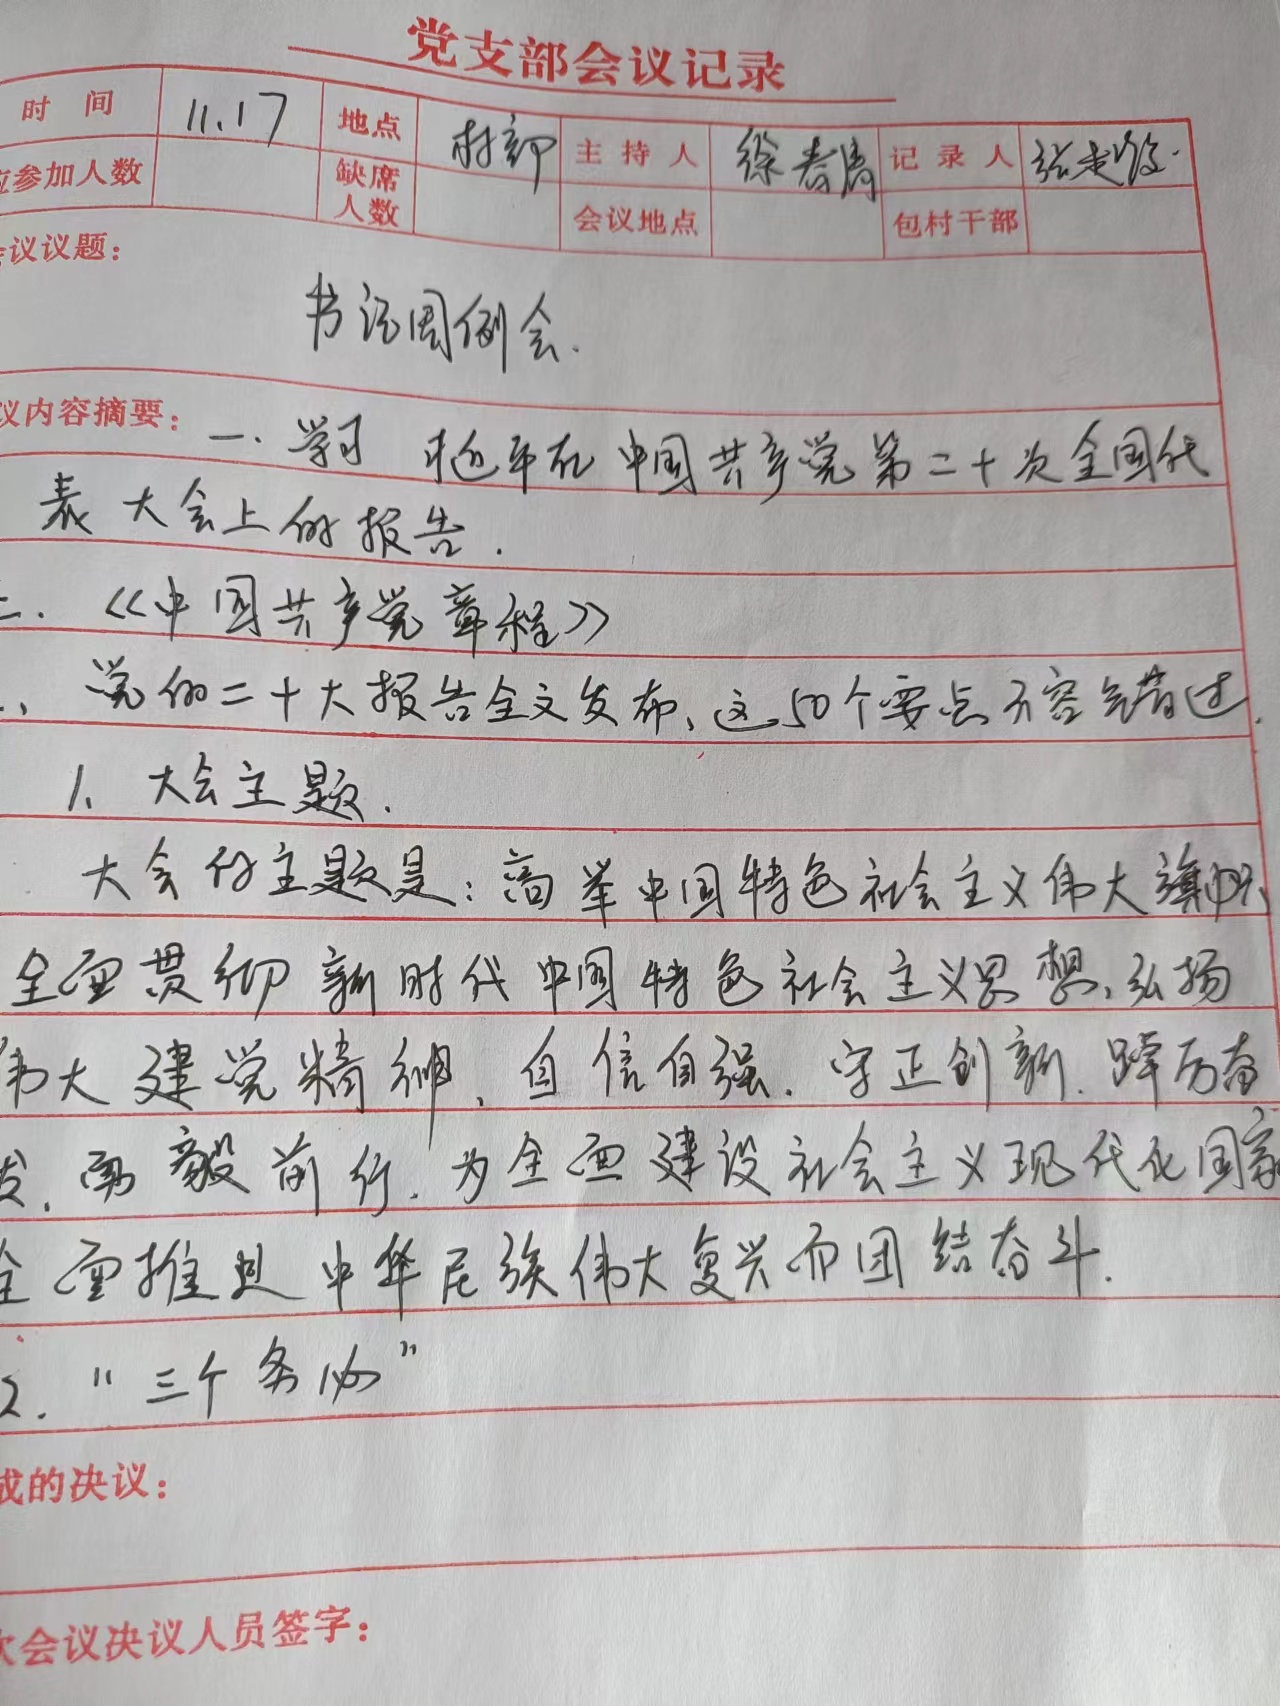 党支部会议记录
时间 11.17 地点 村部 主持人 徐春 记录人 张
应参加人数 缺席人数 会议地点 包村干部
会议议题：
书记周例会.
议内容摘要：一.学习 近平在中国共产党第二十次全国代
表大会上的报告.
二.《中国共产党章程》
党的二十大报告全文发布、这50个要点不容错过.
1、大会主题.
大会的主题是：高举中国特色社会主义伟大旗帜、
全面贯彻新时代中国特色社会主义思想、弘扬
伟大建党精神、自信自强.守正创新.踔厉奋
发.勇毅前行.为全面建设社会主义现代化国家
全面推进中华民族伟大复兴而团结奋斗.
2."三个务必"
成的决议：
次会议决议人员签字：